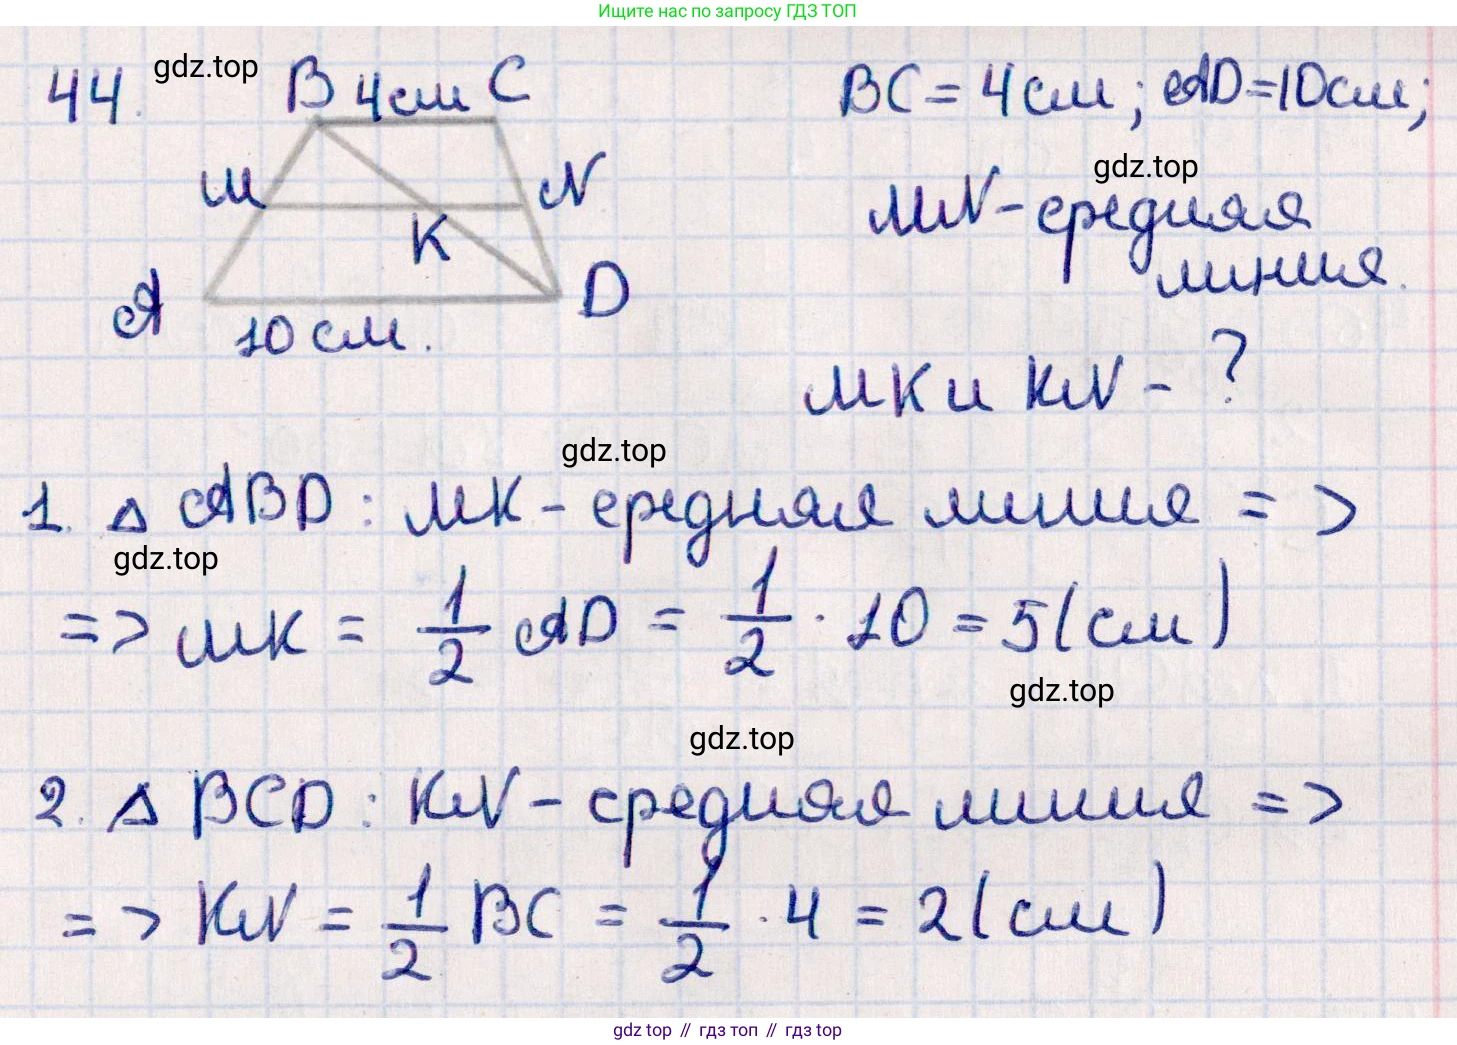 Ищите нас по запросу ГДЗ ТОП
44. gdz.top B 4см C
BC = 4 см; AD = 10 см;
gdz.top
M N
MN - средняя
K
линия.
A D
10 см.
MK и KN - ?
gdz.top
1. △ ABD: MK - средняя линия =>
gdz.top
=> MK = 1/2 AD = 1/2 · 10 = 5 (см)
gdz.top
gdz.top
2. △ BCD: KN - средняя линия =>
=> KN = 1/2 BC = 1/2 · 4 = 2 (см)
gdz top // гдз топ // гдз top